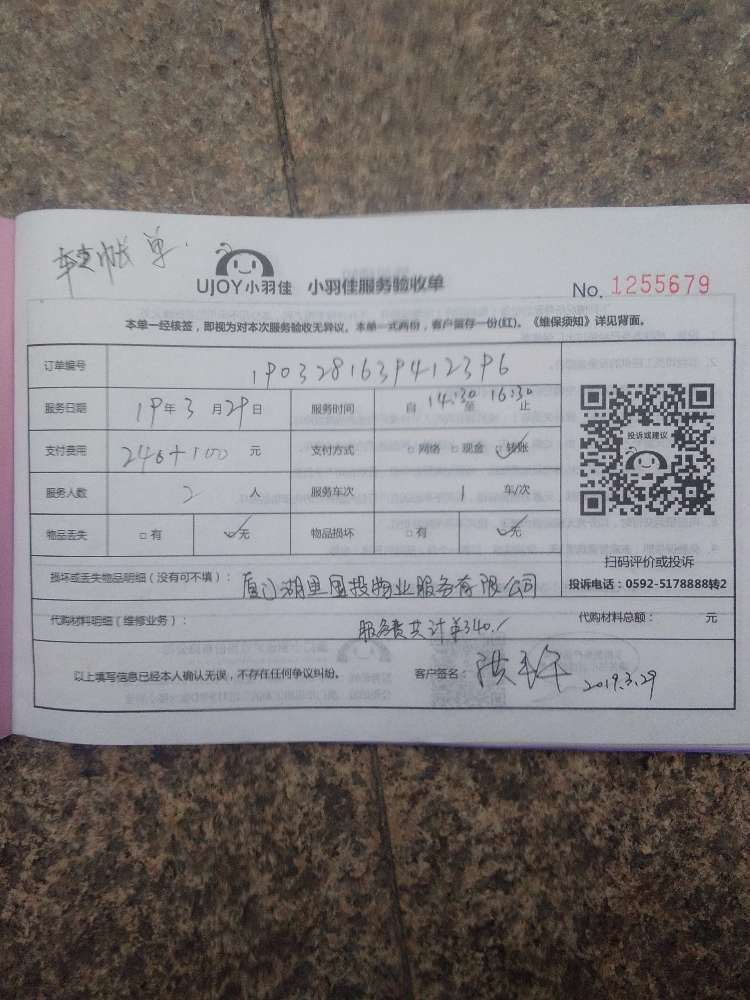 单
UJOY小羽佳 小羽佳服务验收单
No. 1255679
本单一经核签，即视为对本次服务验收无异议。本单一式两份，客户留存一份(红)。《维保须知》详见背面。
订单编号 1903281639412396
服务日期 19年3月29日 服务时间 自14:30至16:30止
支付费用 240+100 元 支付方式 □网络 □现金 □转账
服务人数 2 人 服务车次 1 车/次
物品丢失 □有 □无 物品损坏 □有 □无
投诉或建议
扫码评价或投诉
投诉电话：0592-5178888转2
损坏或丢失物品明细（没有可不填）： 厦门湖里国投物业服务有限公司
代购材料明细（维修业务）： 服务费共计单340./ 代购材料总额： 元
以上填写信息已经本人确认无误，不存在任何争议纠纷。 客户签名： 洪 2019.3.29